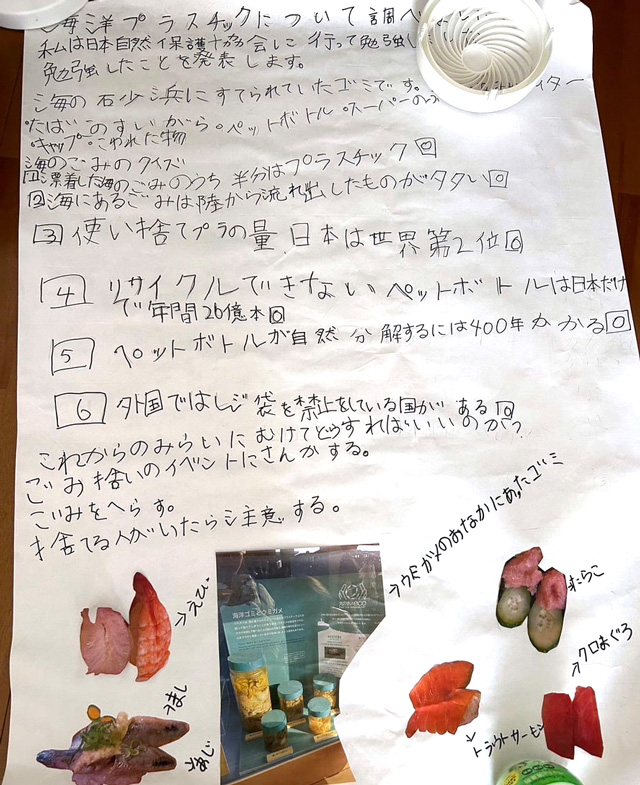 海洋プラスチックについて調べ
私は日本自然保護協会に行って勉強し
勉強したことを発表します。
海の石少浜にすてられていたゴミです。
たばこのすいがら・ペットボトル・スーパーのふ イター
キャップ・こわれた物
海のごみのクイズ
1 漂着した海のごみのうち半分はプラスチック〇
2 海にあるごみは陸から流れ出したものが多い〇
3 使い捨てプラの量日本は世界第2位〇
4 リサイクルできないペットボトルは日本だけ
で年間26億本〇
5 ペットボトルが自然分解するには400年かかる〇
6 外国ではレジ袋を禁止をしている国がある〇
これからのみらいにむけてどうすればいいのか?
ごみ拾いのイベントにさんかする。
ごみをへらす。
捨てる人がいたら注意する。
→ウミガメのおなかにあったゴミ
→えび
→たらこ
海洋ゴミとウミガメ
→クロまぐろ
→いわし
→あじ
→トラウトサーモン